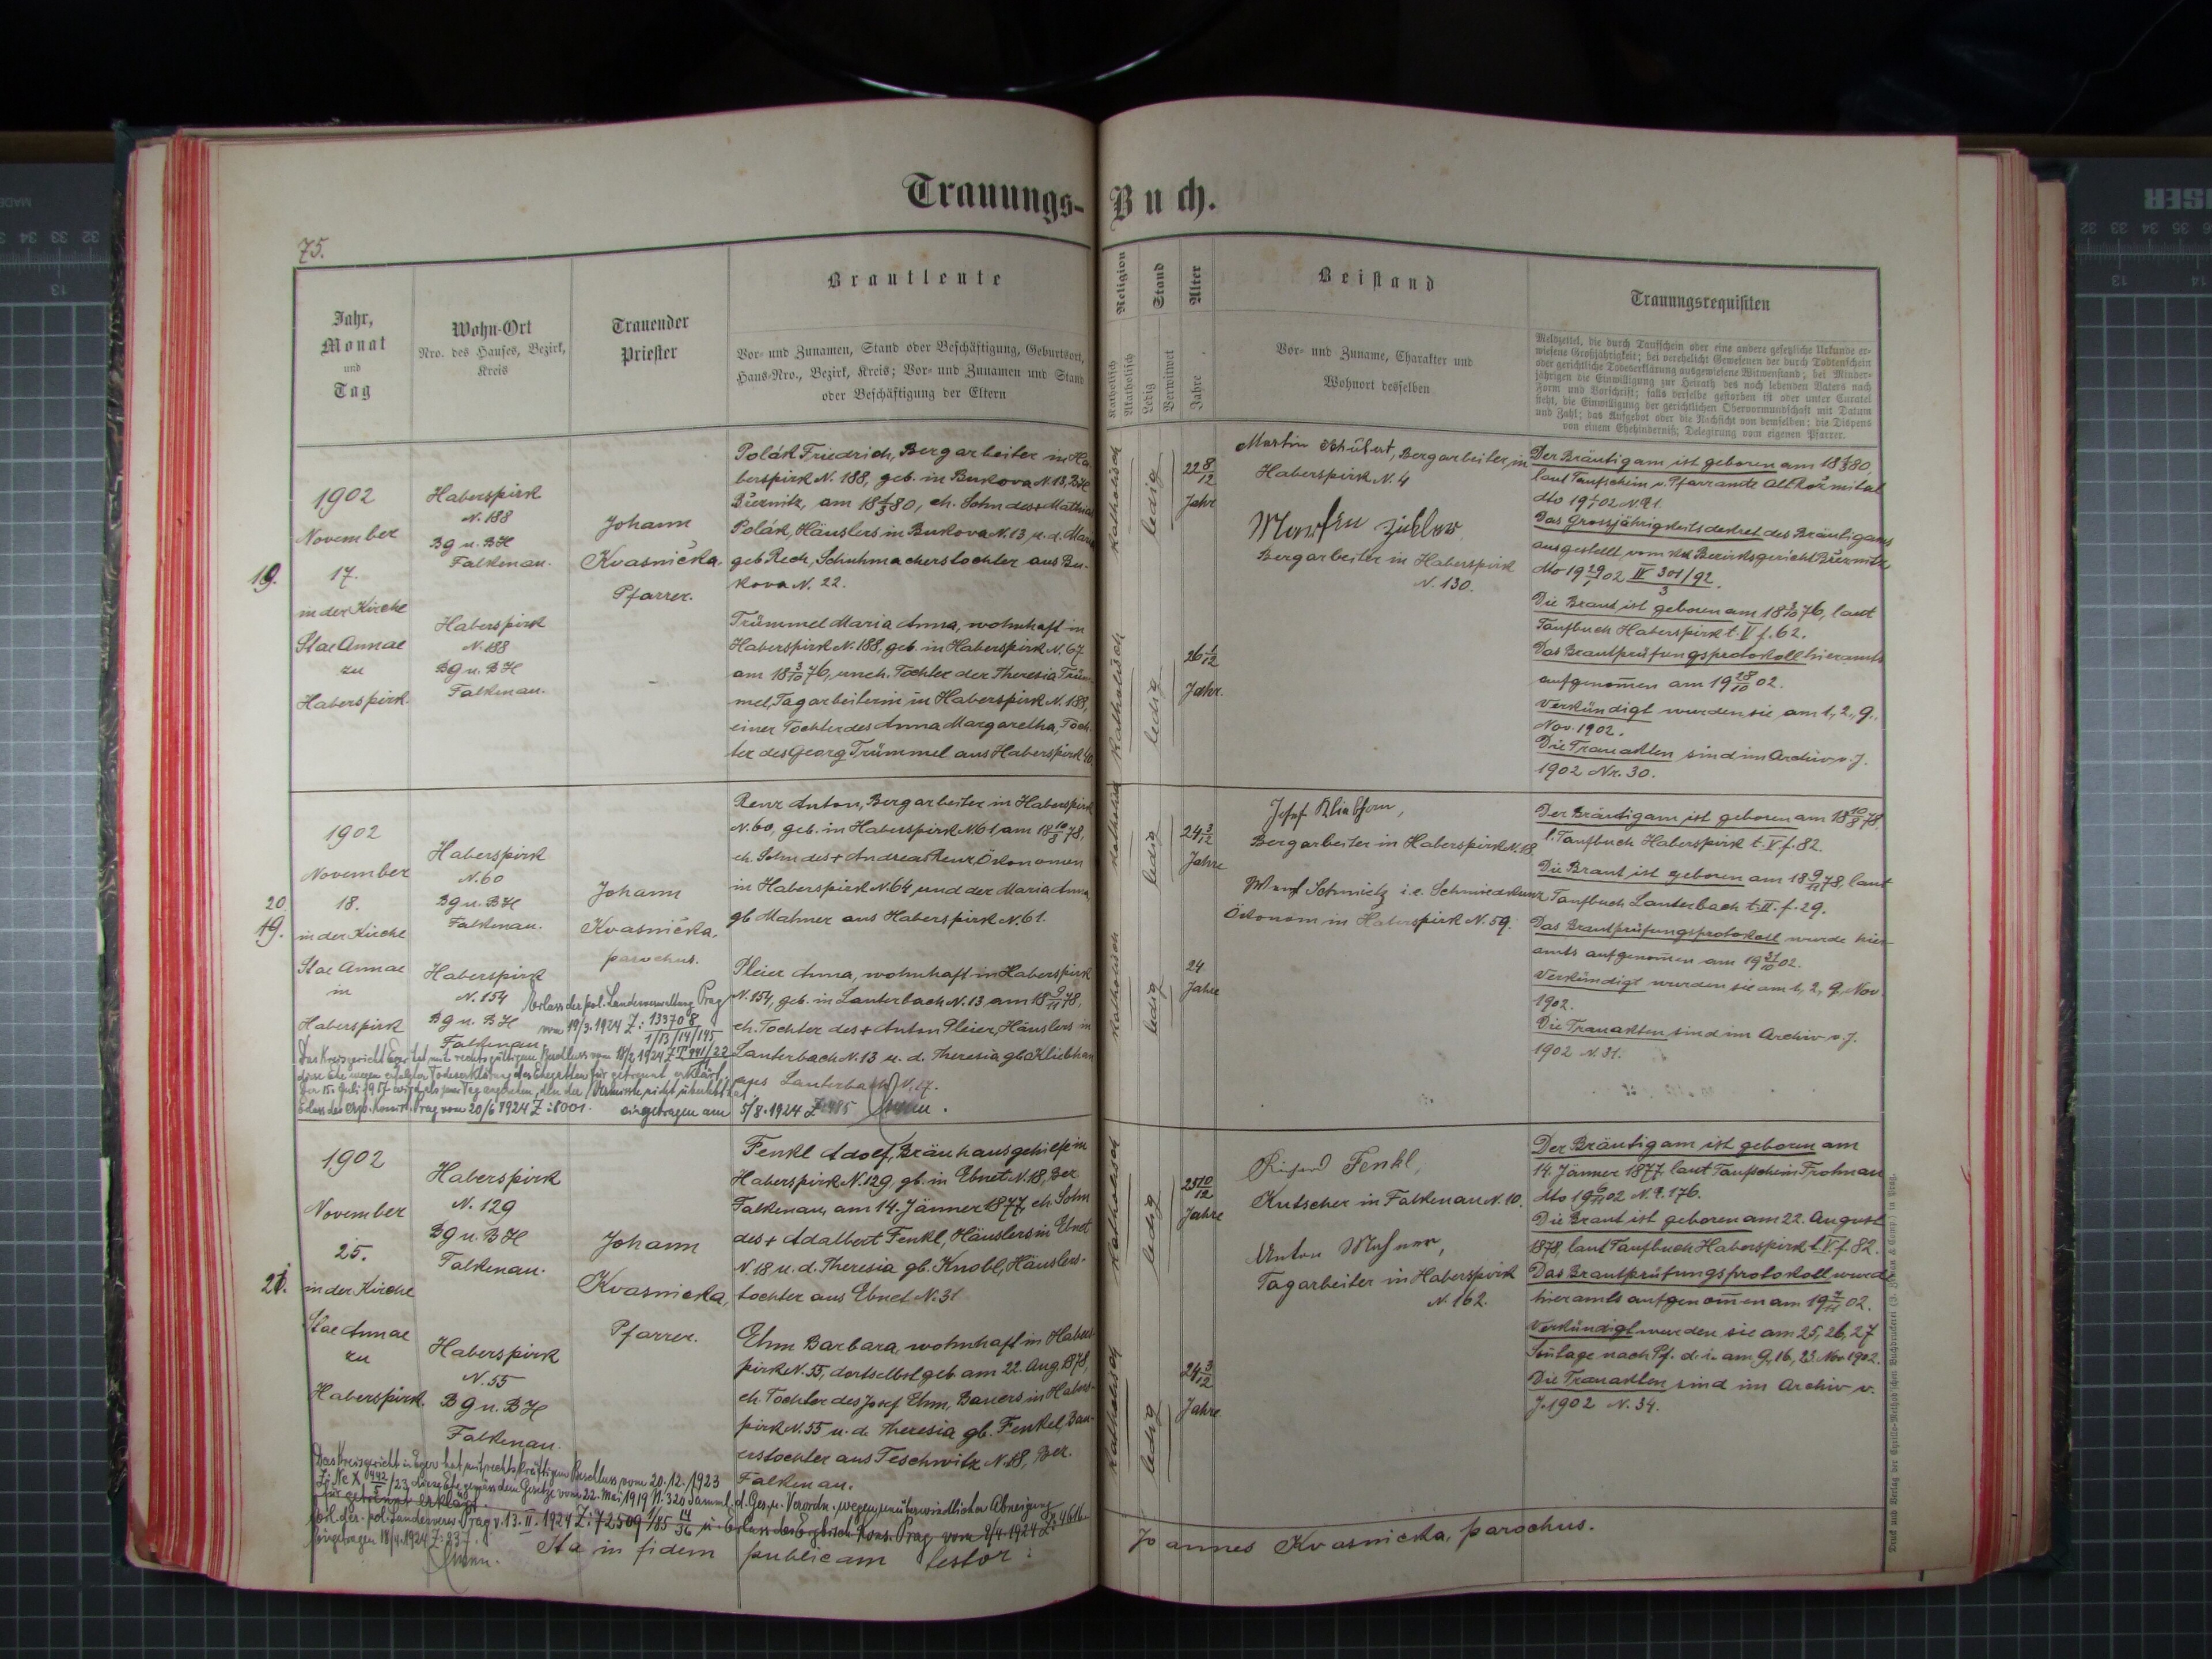 Trauungs-Buch.
75.
Jahr,
Monat
und
Tag
Wohn-Ort
Nro. des Hauses, Bezirk,
Kreis
Trauender
Priester
Brautleute
Vor- und Zunamen, Stand oder Beschäftigung, Geburtsort,
Haus-Nro., Bezirk, Kreis; Vor- und Zunamen und Stand
oder Beschäftigung der Eltern
Religion
Katholisch
Akatholisch
Stand
Ledig
Verwitwet
Alter
Jahre
Beistand
Vor- und Zuname, Charakter und
Wohnort desselben
Trauungsrequisiten
Meldzettel, die durch Taufschein oder eine andere gesetzliche Urkunde er-
wiesene Großjährigkeit; bei verehelicht Gewesenen der durch Todtenschein
oder gerichtliche Todeserklärung ausgewiesene Witwenstand; bei Minder-
jährigen die Einwilligung zur Heirath des noch lebenden Vaters nach
Form und Vorschrift; falls derselbe gestorben ist oder unter Curatel
steht, die Einwilligung der gerichtlichen Obervormundschaft mit Datum
und Zahl; das Aufgebot oder die Nachsicht von demselben; die Dispens
von einem Ehehinderniß; Delegirung vom eigenen Pfarrer.
19.
1902
November
17.
in der Kirche
Stae Annae
zu
Haberspirk.
Haberspirk
N. 188
Bg u. BH
Falkenau.
Haberspirk
N. 188
Bg u. BH
Falkenau.
Johann
Kvasnička,
Pfarrer.
Polák Friedrich, Bergarbeiter in Ha-
berspirk N. 188, geb. in Bukova N. 13, BH
Březnitz, am 18 4/3 80, eh. Sohn des + Mathias
Polák, Häuslers in Bukova N. 13 u. d. Maria
geb Rech, Schuhmacherstochter aus Bu-
kova N. 22.
Trümmel Maria Anna, wohnhaft in
Haberspirk N. 188, geb. in Haberspirk N. 67
am 18 3/10 76, uneh. Tochter der Theresia Trüm-
mel, Tagarbeiterin in Haberspirk N. 188,
einer Tochter des Anna Margaretha, Toch-
ter des Georg Trümmel aus Haberspirk 40.
katholisch
ledig
22 8/12
Jahr
katholisch
ledig
26 1/12
Jahr
Martin Schübert, Bergarbeiter, in
Haberspirk N. 4
Martin
Bergarbeiter in Haberspirk
N. 130.
Der Bräutigam ist geboren am 18 4/3 80,
laut Taufschein v. Pfarramte Altrožmital
dto 19 02 N. 91.
Das Grossjährigkeitsdekret des Bräutigams
ausgestellt vom kk Bezirksgericht Březnitz
dto 19 29/1 02 IV 301/92
3
Die Braut ist geboren am 18 3/10 76, laut
Taufbuch Haberspirk t. V f. 62.
Das Brautprüfungsprotokoll hieramts
aufgenom̄en am 19 28/10 02.
Verkündigt wurden sie am 1., 2., 9.,
Nov. 1902.
Die Trauakten sind im Archiv v. J.
1902 Nr. 30.
20
19.
1902
November
18.
in der Kirche
Stae Annae
in
Haberspirk
Haberspirk
N. 60
Bg u. BH
Falkenau.
Haberspirk
N. 154
Bg u. BH
Falkenau.
Johann
Kvasnička,
parochus.
Renz Anton, Bergarbeiter in Haberspirk
N. 60, geb. in Haberspirk N. 61 am 18 10/8 78,
eh. Sohn des + Andreas Renz Ökonomen
in Haberspirk N. 64 und der Maria Anna,
gb Mahner aus Haberspirk N. 61.
Pleier Anna, wohnhaft in Haberspirk
N. 154, geb. in Lauterbach N. 13 am 18 9/11 78,
eh. Tochter des + Anton Pleier, Häuslers in
Lauterbach N. 13 u. d. Theresia gb Kliebhan
aus Lauterbach N. 17.
Erlass der pol. Landesverwaltung Prag
vom 19/3. 1924 Z: 133708
1/13/14/145
Das Kreisgericht Eger hat mit rechtsgültigem Beschluss vom 18/2 1924 Z T 441/22
diese Ehe wegen erfolgter Todeserklärung des Ehegatten für getrennt erklärt.
Der 15. Juli 1917 wird als jener Tag angesehen, den der Vermisste nicht überlebt hat.
Erlass des erzb. Konsist. Prag vom 20/6 1924 Z: 8001. eingetragen am 5/8. 1924 Z: 485
katholisch
ledig
24 3/12
Jahre
katholisch
ledig
24
Jahre
Josef Kliebhan,
Bergarbeiter in Haberspirk N. 18.
Wenzl Schmietz i. e. Schmiedkunz
Ökonom in Haberspirk N. 59.
Der Bräutigam ist geboren am 18 10/8 78,
l. Taufbuch Haberspirk t. V f. 82.
Die Braut ist geboren am 18 9/11 78, laut
Taufbuch Lauterbach t. II. f. 29.
Das Brautprüfungsprotokoll wurde hier-
amts aufgenom̄en am 19 31/10 02.
Verkündigt wurden sie am 1., 2., 9., Nov.
1902.
Die Trauakten sind im Archiv v. J.
1902 N. 31.
21.
1902
November
25.
in der Kirche
Stae Annae
zu
Haberspirk.
Haberspirk
N. 129
Bg u. BH
Falkenau.
Haberspirk
N. 55
Bg u. BH
Falkenau.
Johann
Kvasnicka,
Pfarrer.
Fenkl Adolf, Bräuhausgehilfe in
Haberspirk N. 129, gb. in Ebnet N. 18, Bez
Falkenau, am 14. Jänner 1877, eh. Sohn
des + Adalbert Fenkl, Häuslers in Ebnet
N. 18 u. d. Theresia gb. Knobl, Häuslers-
tochter aus Ebnet N. 31
Ehm Barbara, wohnhaft in Habers-
pirk N. 55, dortselbst geb am 22. Aug. 1878,
eh. Tochter des Josef Ehm, Bauers in Habers-
pirk N. 55 u. d. Theresia gb. Fenkel, Bau-
erstochter aus Teschwitz N. 18, Bez.
Falkenau.
Das Kreisgericht in Eger hat mit rechtskräftigem Beschluss vom 20. 12. 1923
Z: Nc X 942/5 /23 diese Ehe gemäss dem Gesetze vom 22. Mai 1919 N. 320 Samml. d. Ges. u. Verordn. wegen unüberwindlicher Abneigung
für getrennt erklärt.
Erl. der pol. Landesverw. Prag v. 13. II. 1924 Z: 72509 1/85 14/36 u. Erlass des Erzbisch. Kons. Prag vom 8/4. 1924 Z: 4616.
Eingetragen 18/4. 1924 Z: 237.
katholisch
ledig
25 10/12
Jahre
katholisch
ledig
24 3/12
Jahre
Richard Fenkl,
Kutscher in Falkenau N. 10.
Anton Mahner,
Tagarbeiter in Haberspirk
N. 162.
Der Bräutigam ist geboren am
14. Jänner 1877. laut Taufschein Frohnau
dto 19 6/11 02 N. 9. 176.
Die Braut ist geboren am 22. August
1878, laut Taufbuch Haberspirk t. V. f. 82.
Das Brautprüfungsprotokoll wurde
hieramts aufgenom̄en am 19 7/11 02.
Verkündigt wurden sie am 25, 26, 27
Son̄tage nach Pf. d. i. am 9., 16., 23. Nov 1902.
Die Trauakten sind im Archiv v.
J. 1902 N. 34.
Ita in fidem publicam testor: Joannes Kvasnicka, parochus.